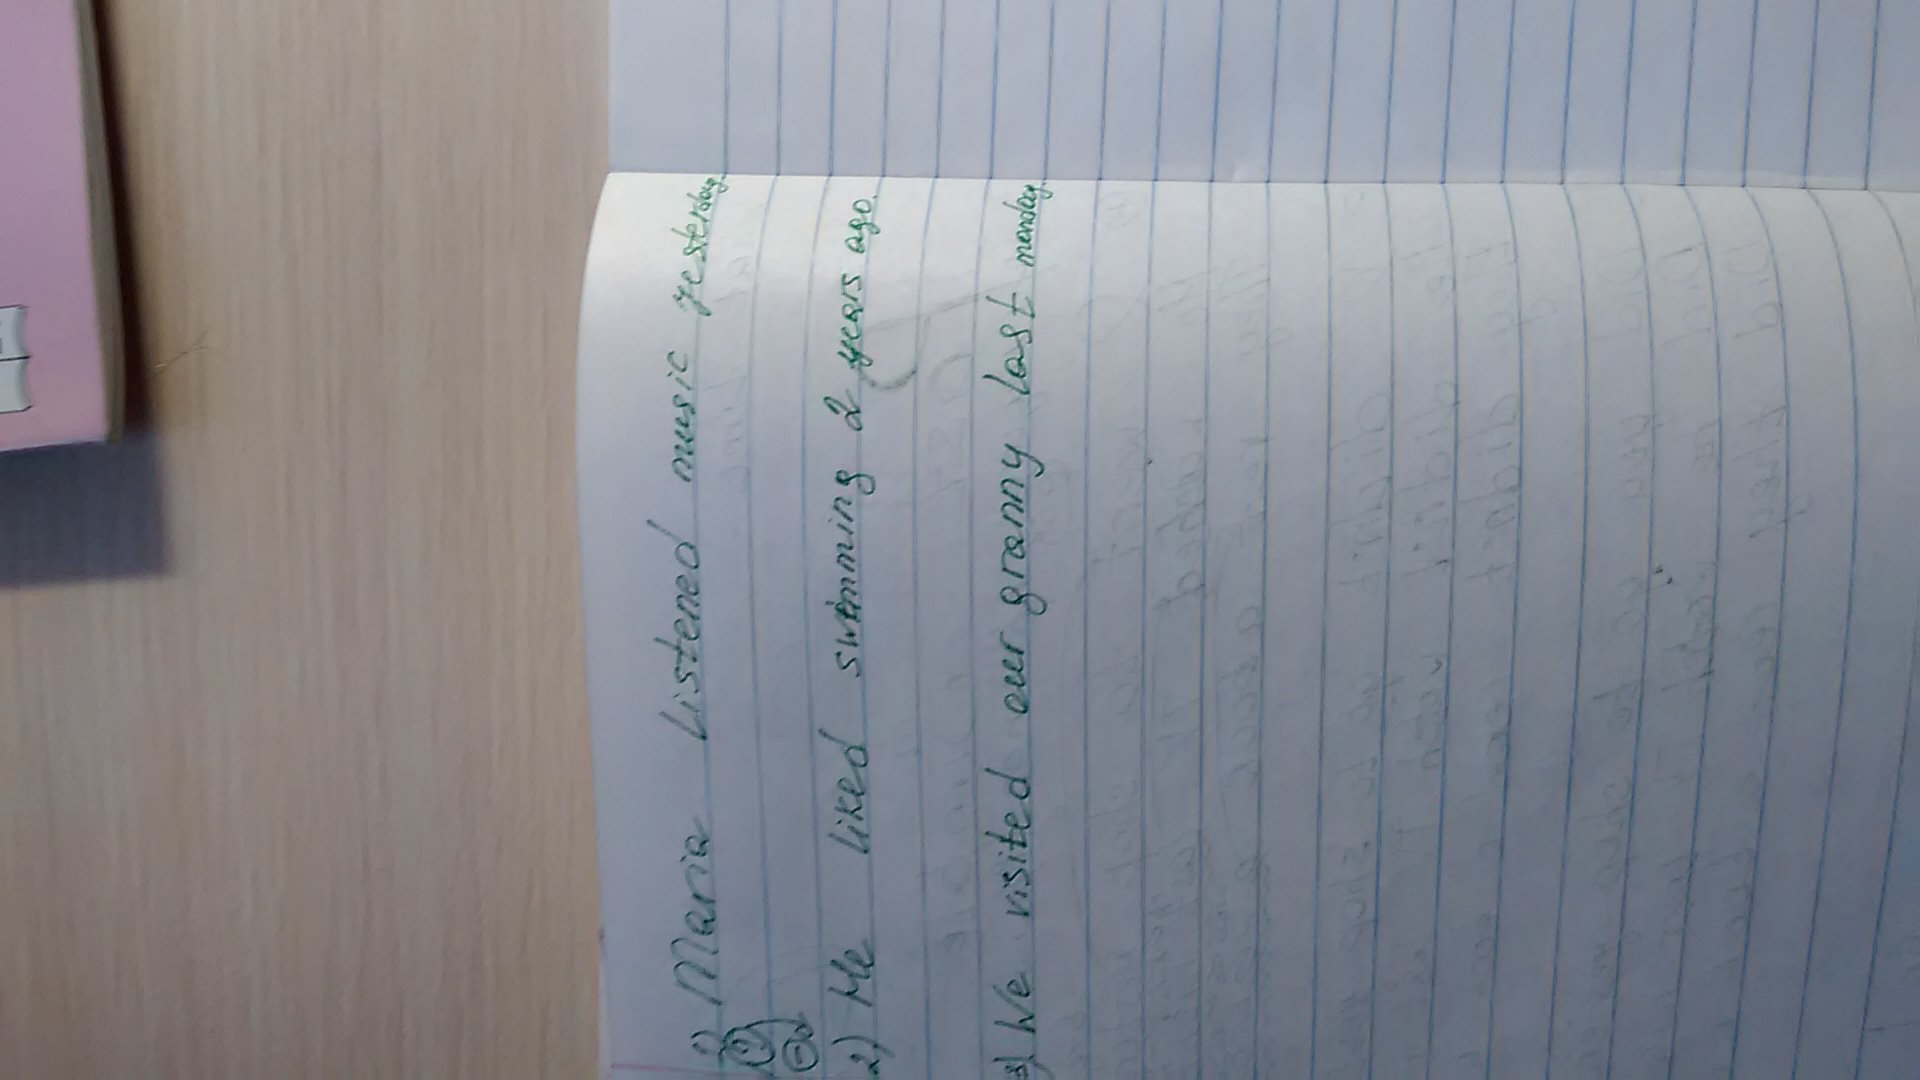 1) Maria listened music yesterday.
2) He liked swimming 2 years ago.
3) We visited our granny last monday.